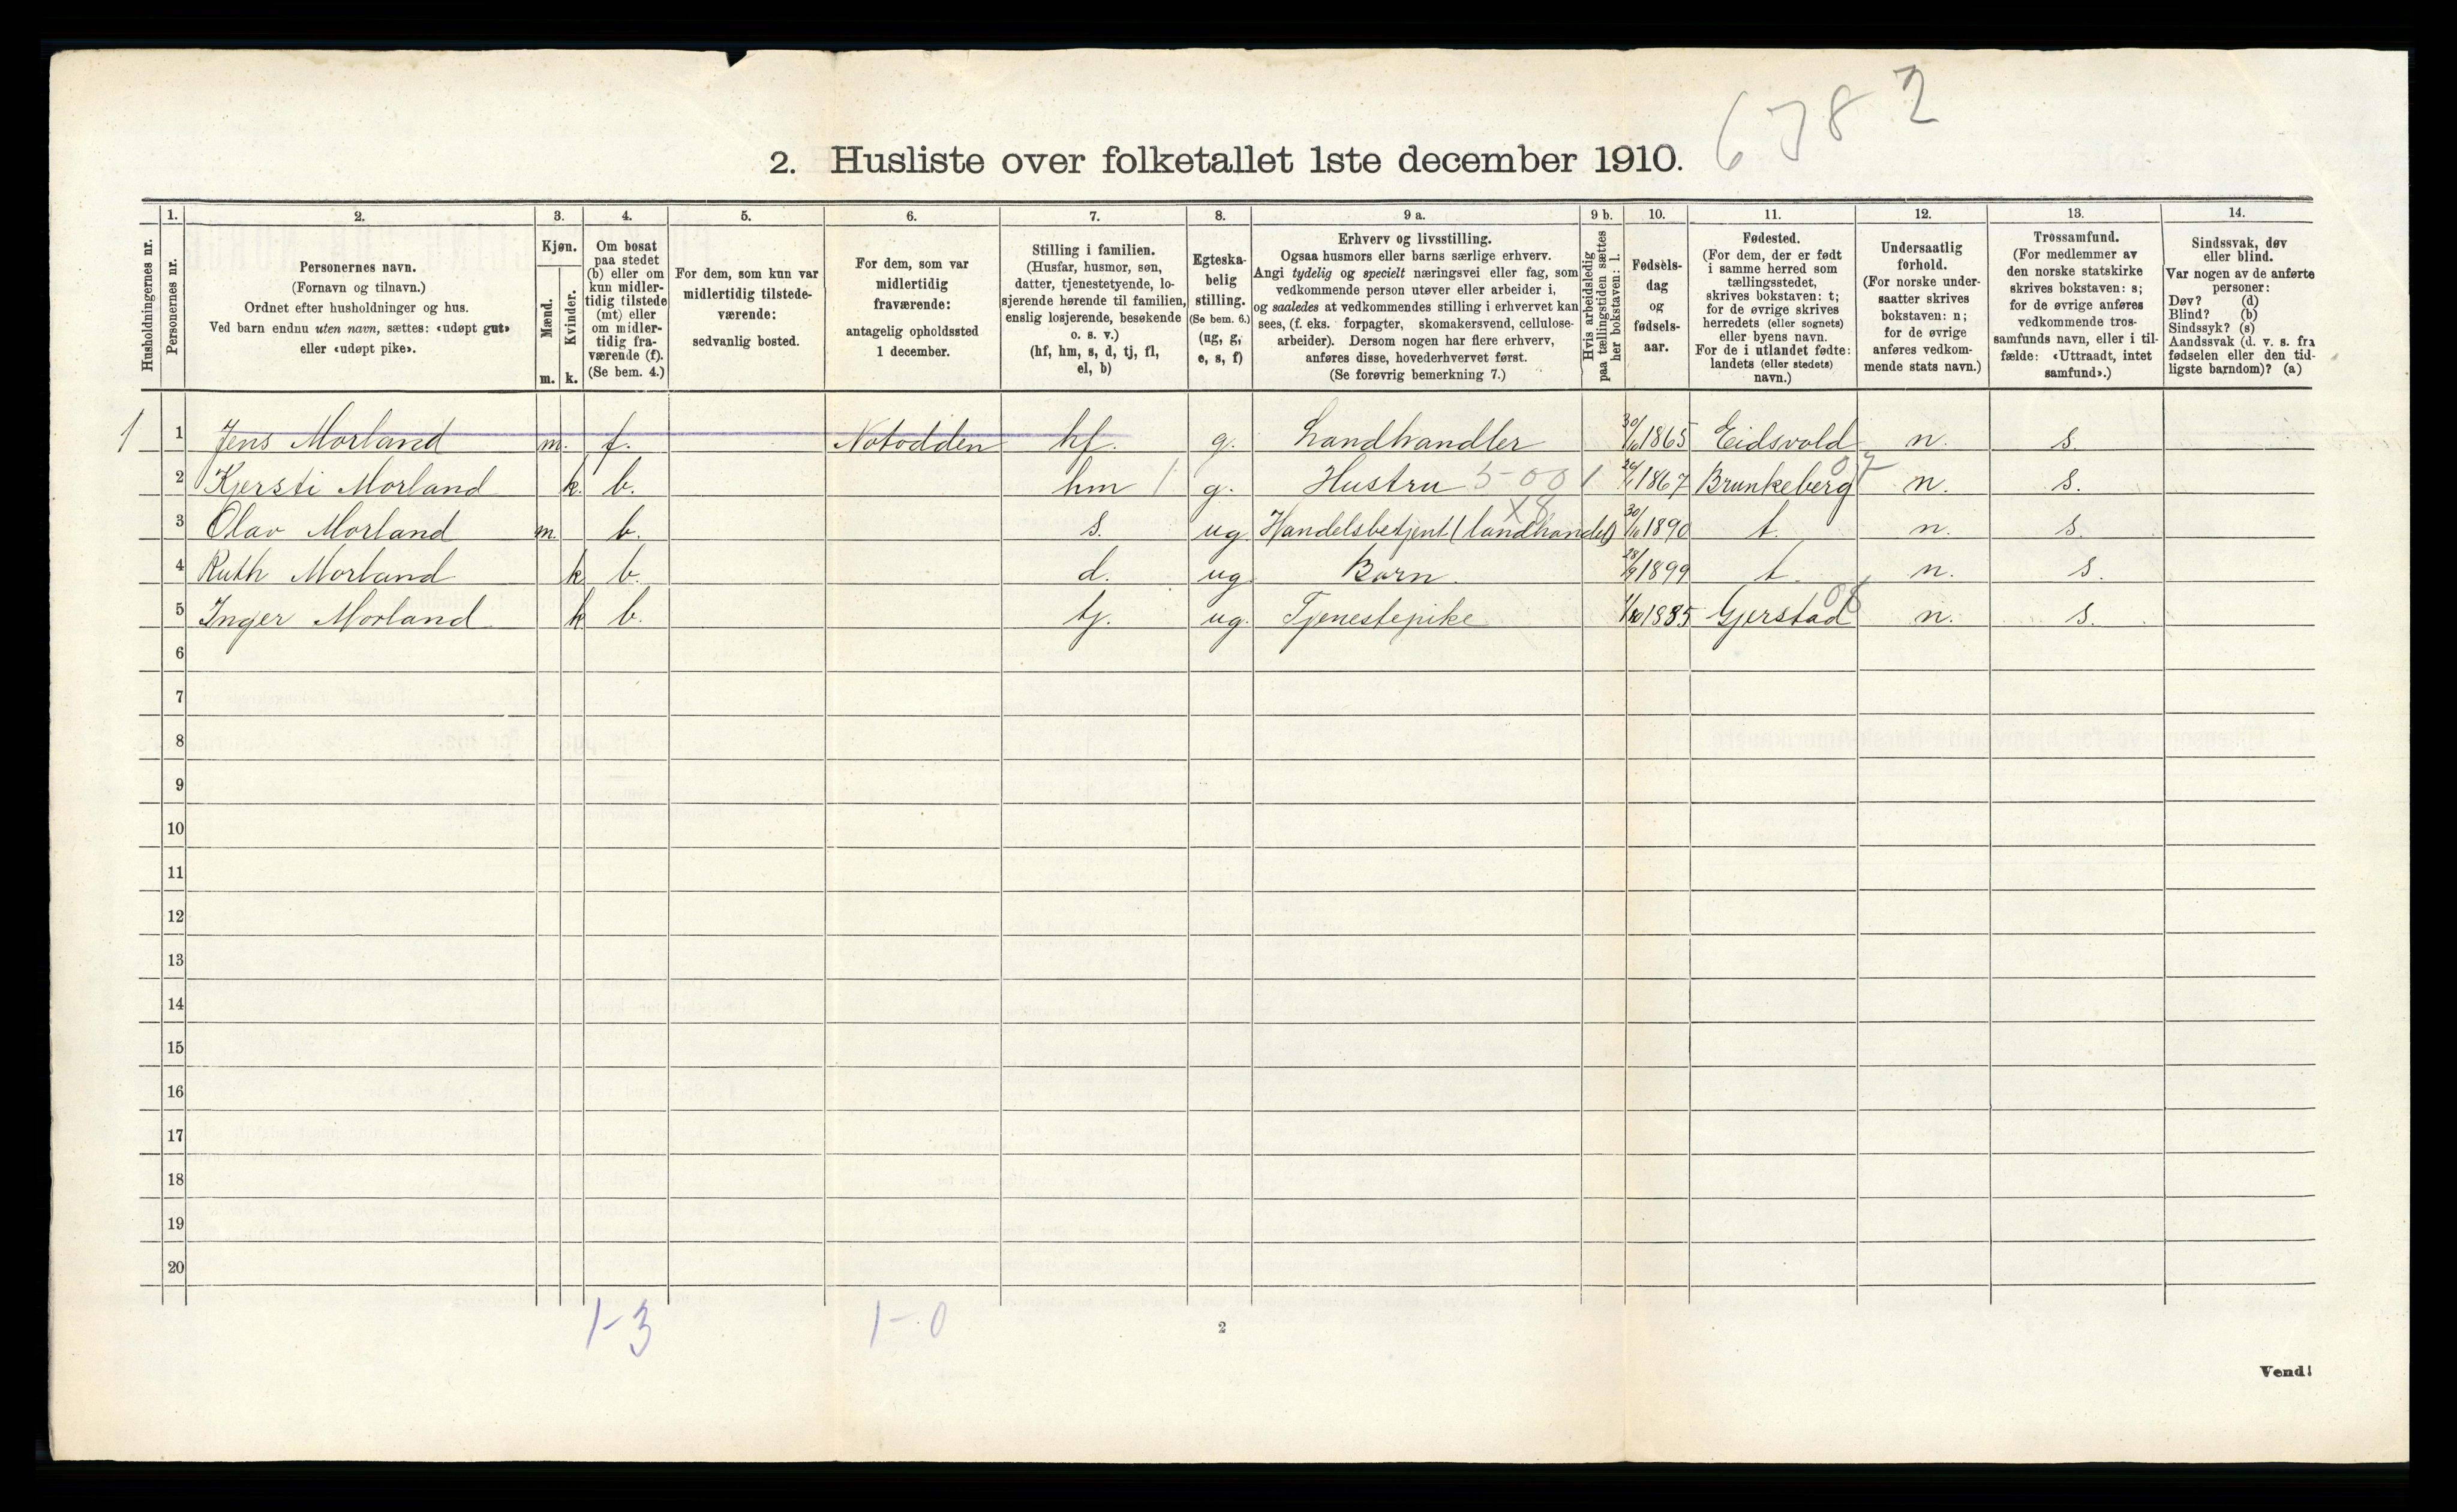 6782
2. Husliste over folketallet 1ste december 1910.
Husholdningernes nr.
1. Personernes nr.
2. Personernes navn.
(Fornavn og tilnavn.)
Ordnet efter husholdninger og hus.
Ved barn endnu uten navn, sættes: «udøpt gut»
eller «udøpt pike».
3. Kjøn.
Mænd. m.
Kvinder. k.
4. Om bosat
paa stedet
(b) eller om
kun midler-
tidig tilstede
(mt) eller
om midler-
tidig fra-
værende (f).
(Se bem. 4.)
5. For dem, som kun var
midlertidig tilstede-
værende:
sedvanlig bosted.
6. For dem, som var
midlertidig
fraværende:
antagelig opholdssted
1 december.
7. Stilling i familien.
(Husfar, husmor, søn,
datter, tjenestetyende, lo-
sjerende hørende til familien,
enslig losjerende, besøkende
o. s. v.)
(hf, hm, s, d, tj, fl,
el, b)
8. Egteska-
belig
stilling.
(Se bem. 6.)
(ug, g,
e, s, f)
9 a. Erhverv og livsstilling.
Ogsaa husmors eller barns særlige erhverv.
Angi tydelig og specielt næringsvei eller fag, som
vedkommende person utøver eller arbeider i,
og saaledes at vedkommendes stilling i erhvervet kan
sees, (f. eks. forpagter, skomakersvend, cellulose-
arbeider). Dersom nogen har flere erhverv,
anføres disse, hovederhvervet først.
(Se forøvrig bemerkning 7.)
9 b. Hvis arbeidsledig
paa tællingstiden sættes
her bokstaven: l.
10. Fødsels-
dag
og
fødsels-
aar.
11. Fødested.
(For dem, der er født
i samme herred som
tællingsstedet,
skrives bokstaven: t;
for de øvrige skrives
herredets (eller sognets)
eller byens navn.
For de i utlandet fødte:
landets (eller stedets)
navn.)
12. Undersaatlig
forhold.
(For norske under-
saatter skrives
bokstaven: n;
for de øvrige
anføres vedkom-
mende stats navn.)
13. Trossamfund.
(For medlemmer av
den norske statskirke
skrives bokstaven: s;
for de øvrige anføres
vedkommende tros-
samfunds navn, eller i til-
fælde: «Uttraadt, intet
samfund».)
14. Sindssvak, døv
eller blind.
Var nogen av de anførte
personer:
Døv? (d)
Blind? (b)
Sindssyk? (s)
Aandssvak (d. v. s. fra
fødselen eller den tid-
ligste barndom)? (a)
1 1 Jens Morland m. f. Notodden hf. g. Landhandler 1865 Eidsvold n. s.
2 Kjersti Morland k. b. hm 1 g. Hustru 5-00 1 1867 Brunkeberg 07 n. s.
3 Olav Morland m. b. s. ug Handelsbetjent (landhandel) X8 1890 t. n. s.
4 Ruth Morland k b. d. ug Barn. 28/9 1899 t. n. s.
5 Inger Morland k b. tj. ug. Tjenestepike 1885 Gjerstad 08 n. s.
6
7
8
9
10
11
12
13
14
15
16
17
18
19
20
1-3 1-0
2
Vend!